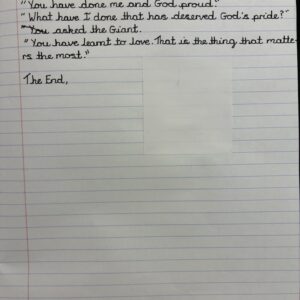 "You have done me and God proud."
"What have I done that has deserved God's pride?"
asked the Giant.
"You have learnt to love. That is the thing that matte-
rs the most."
The End,